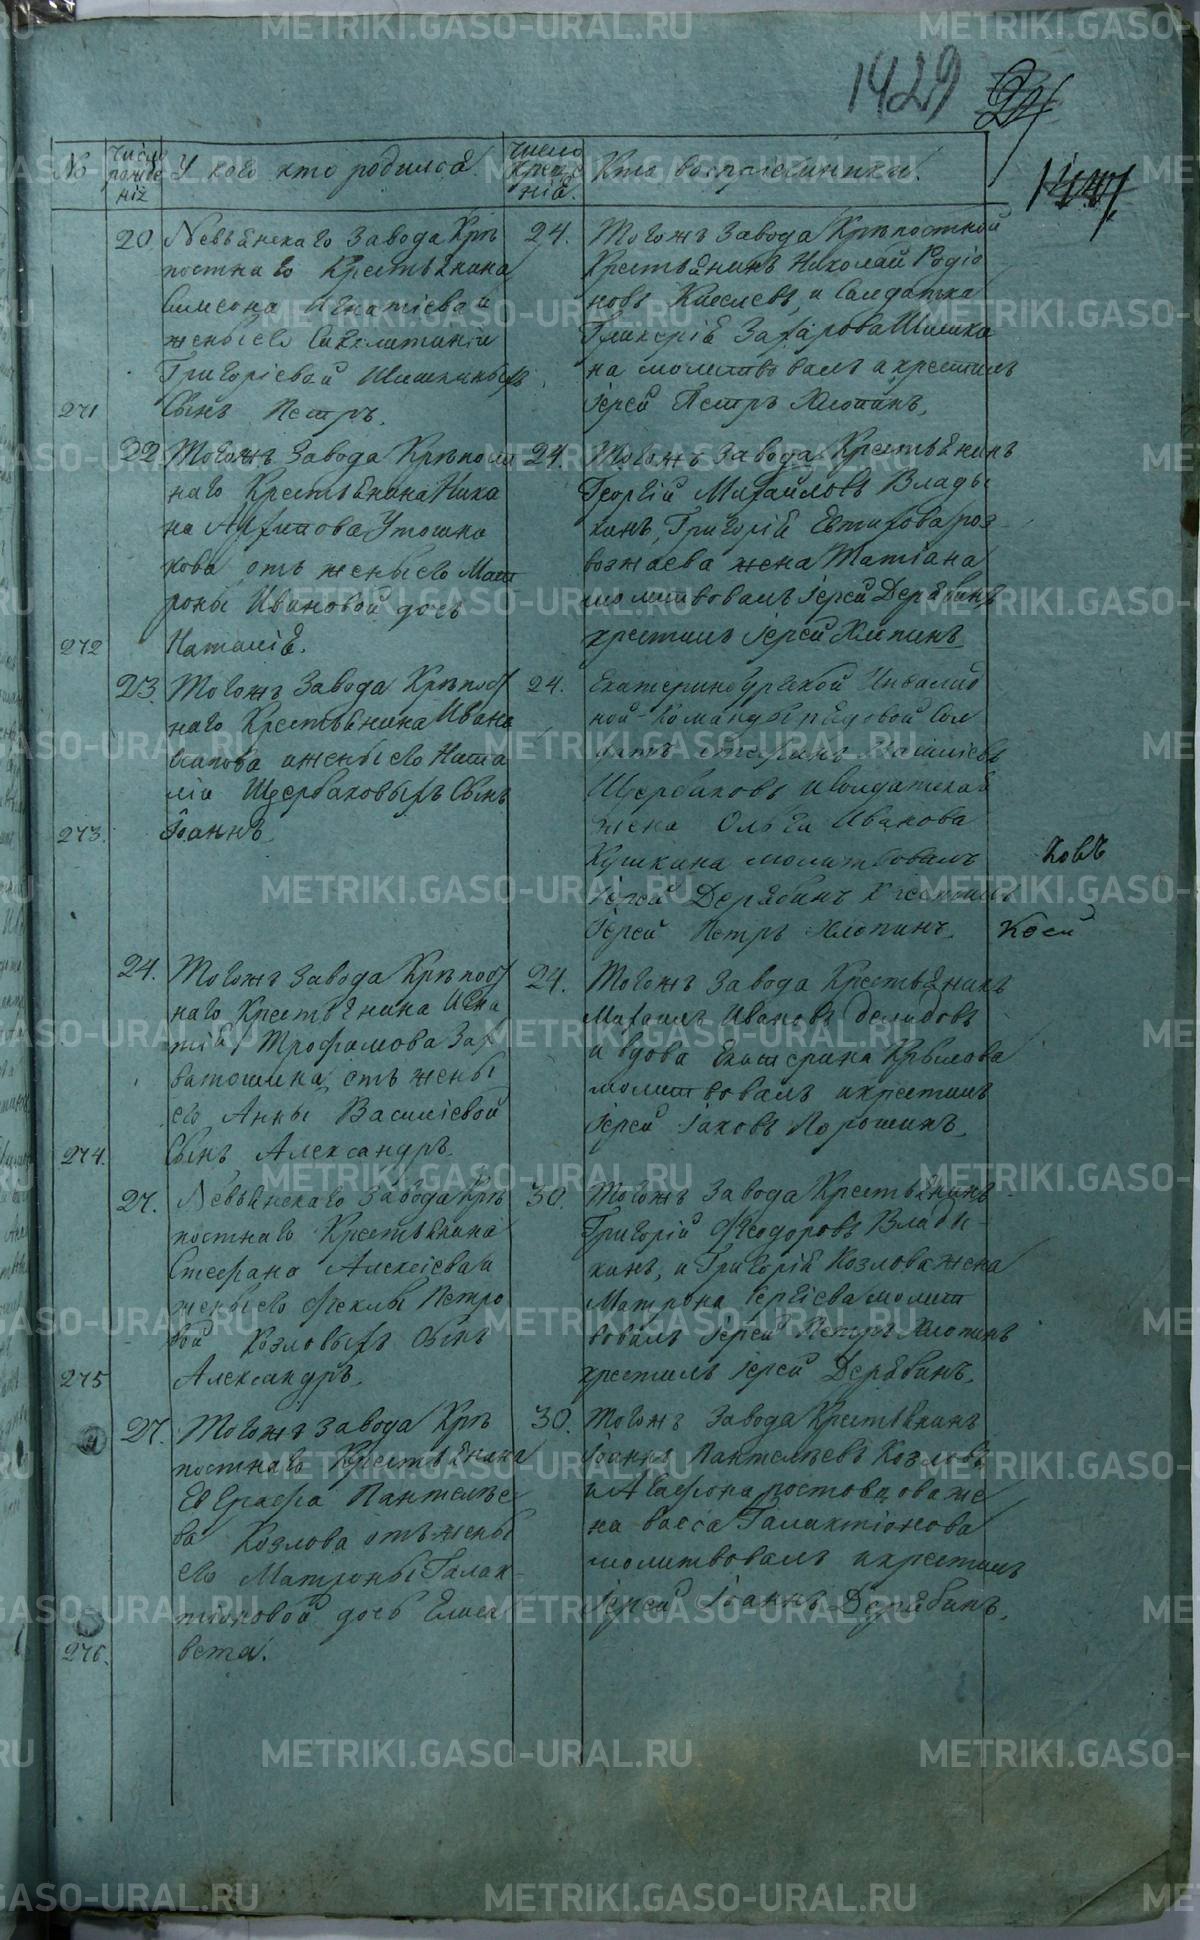 1429
№
Число рожде нія
У кого кто родился
Число креще нія.
Кто воспріемники.
271
20.
Невьянскаго Завода Крѣ
постнаго Крестьянина
Симеона Игнатіева и
жены его
Григоріевой Шишкиныхъ
Сынъ Петръ.
24.
Тогожъ Завода Крѣпостной
Крестьянинъ Николай Родіо
новъ Киселевъ, и Салдатка
Гликерія Захарова Шишки
на молитвовалъ и крестилъ
Іерей Петръ Хлопинъ.
272
22
Тогожъ Завода Крѣпост
наго Крестьянина Ника
на Архипова
кова отъ жены его Мат
роны Ивановой дочь
Наталія.
24.
Тогожъ Завода Крестьянинъ
Георгій Михайловъ Влады
кинъ, Григорія Евтифова роз
возжаева жена Татіана
молитвовалъ Іерей Дерябинъ
крестилъ Іерей Хлопинъ
273.
23.
Тогожъ Завода Крѣпост
наго Крестьянина Ивана
Осипова и жены его Ната
ліи Щербаковыхъ Сынъ
Іоаннъ.
24.
Екатеринбургской Инвалид
ной Команды рядовой Сол
датъ Стефанъ Василіевъ
Щербаковъ и солдатская
жена Ольга Иванова
Кушкина молитвовалъ
Іерей Дерябинъ Крестилъ
Іерей Петръ Хлопинъ.
274.
24.
Тогожъ Завода Крѣпост
наго Крестьянина Игна
тія Трофимова Зах
ватошина, отъ жены
его Анны Василіевой
Сынъ Александръ.
24.
Тогожъ Завода Крестьянинъ
Михаилъ Ивановъ Демидовъ
и вдова Екатерина Крылова
молитвовалъ и крестилъ
Іерей Іаковъ Порошинъ.
275
27.
Невьянскаго Завода Крѣ
постнаго Крестьянина
Стефана Алексіева и
жены его Феклы Петро
вой Козловыхъ Сынъ
Александръ.
30.
Тогожъ Завода Крестьянинъ
Григорій Феодоровъ Влады-
кинъ, и Григорія Козлова жена
Матрона Сергіева молит
вовалъ Іерей Петръ Хлопинъ
крестилъ Іерей Дерябинъ.
276.
27.
Тогожъ Завода Крѣ
постнаго Крестьянина
Евграфа Пантелѣе
ва Козлова отъ жены
его Матроны Галак-
тіоновой дочь Елиса
вета.
30.
Тогожъ Завода Крестьянинъ
Іоаннъ Пантелѣевъ Козловъ
и Агафона ростовцова же
на Васса Галактіонова
молитвовалъ и крестилъ
Іерей Іоаннъ Дерябинъ.